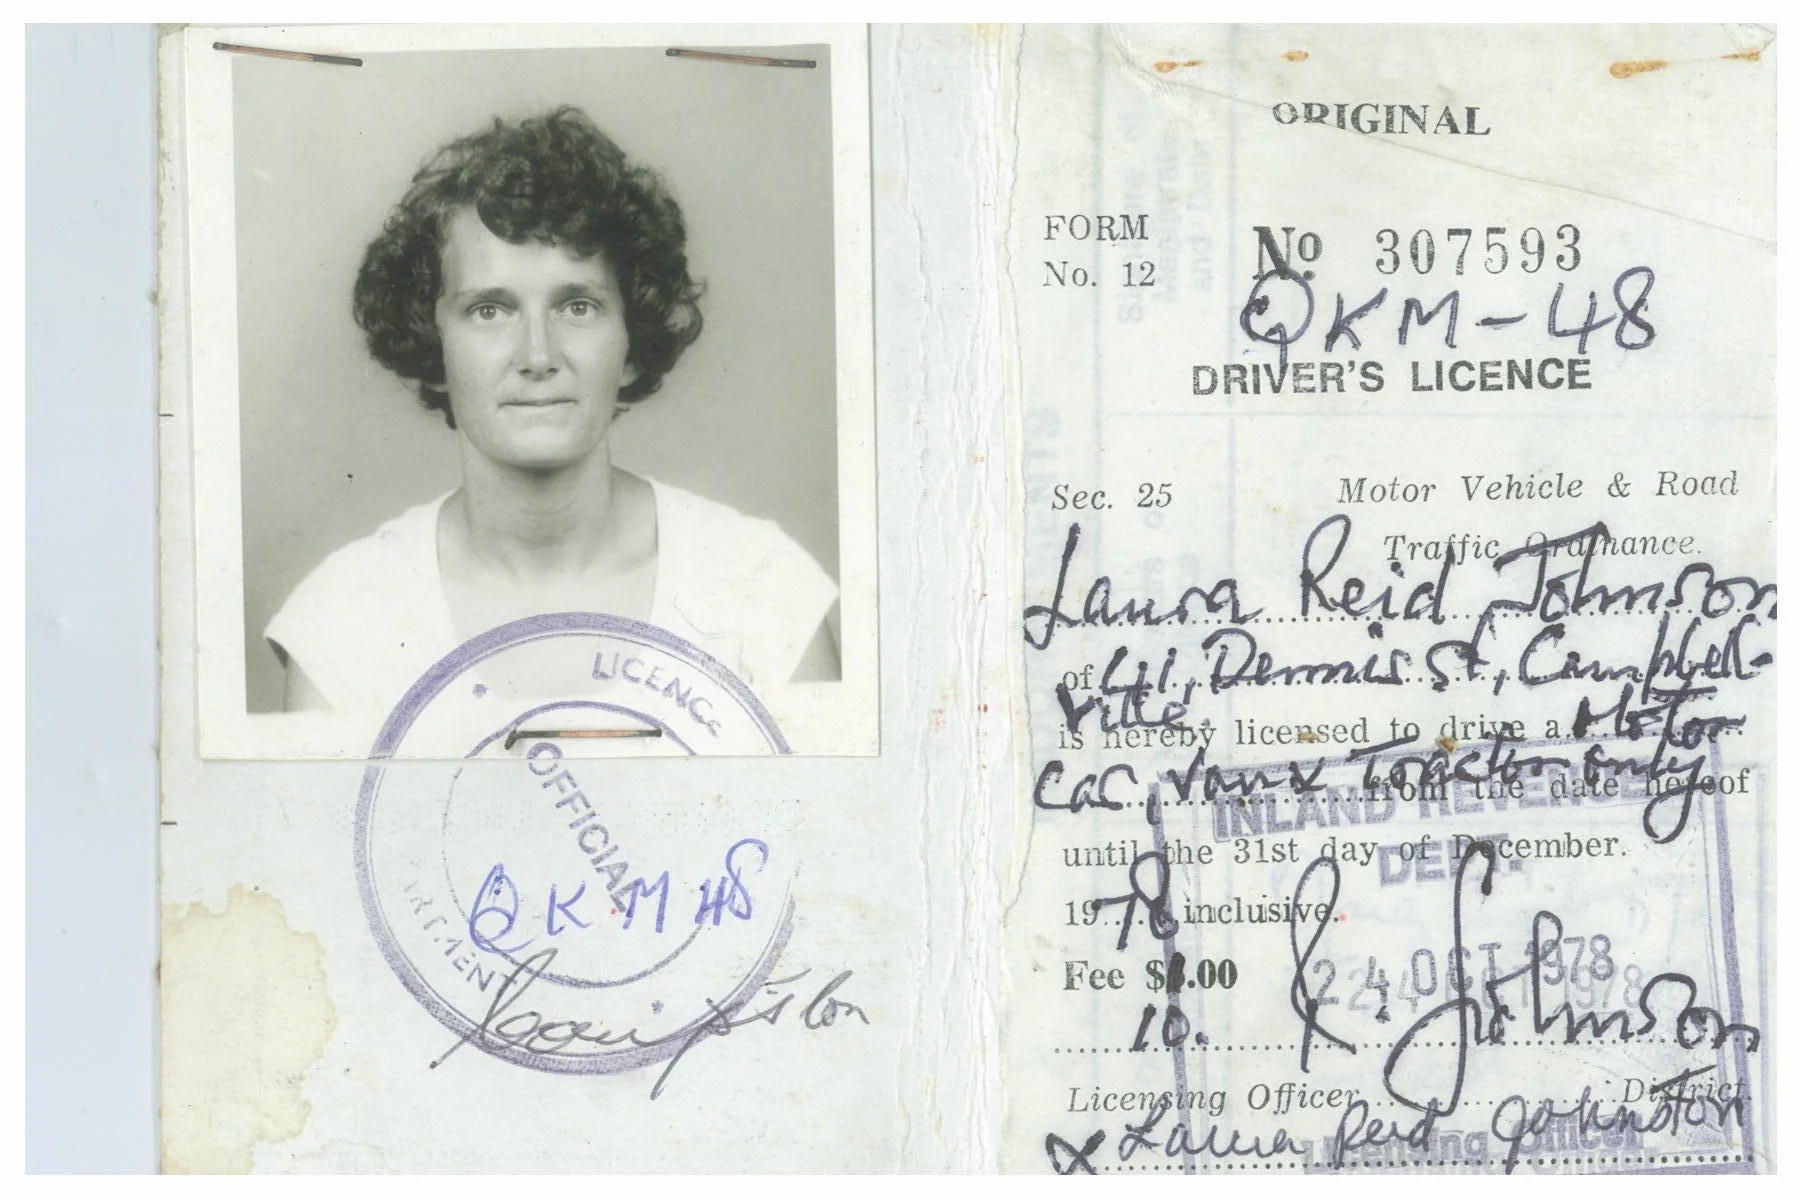 LICENCE
OFFICIAL
QKM 48
ARTMENT
ORIGINAL
FORM
No. 12
No 307593
QKM-48
DRIVER'S LICENCE
Sec. 25
Motor Vehicle & Road
Traffic Ordinance.
Laura Reid Johnson
of 41, Dennis St, Campbell-
ville.
is hereby licensed to drive a Motor
car, van & Tractor only
from the date hereof
INLAND REVENUE
until the 31st day of December.
DEPT.
1978 inclusive.
24 OCT 1978
Fee $1.00
10. R Johnson
Licensing Officer District.
x Laura Reid Johnston
Licensing Officer